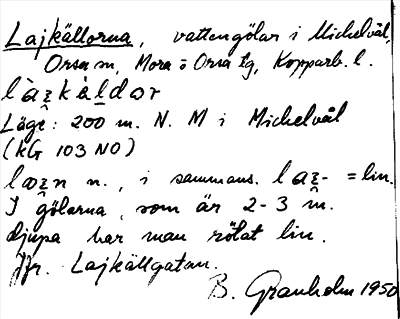 Lajkällorna, vattengölar i Michelvål,
Orsa sn, Mora o Orsa tg, Kopparb. l.
làʒ̂kàldor
Läge: 200 m. N. M i Michelvål
(KG 103 NO)
n., i sammans. laʒ̂- = lin.
I gölarna, som är 2-3 m.
djupa har man rötat lin.
Jfr. Lajkällgatan.
B. Granholm 1950